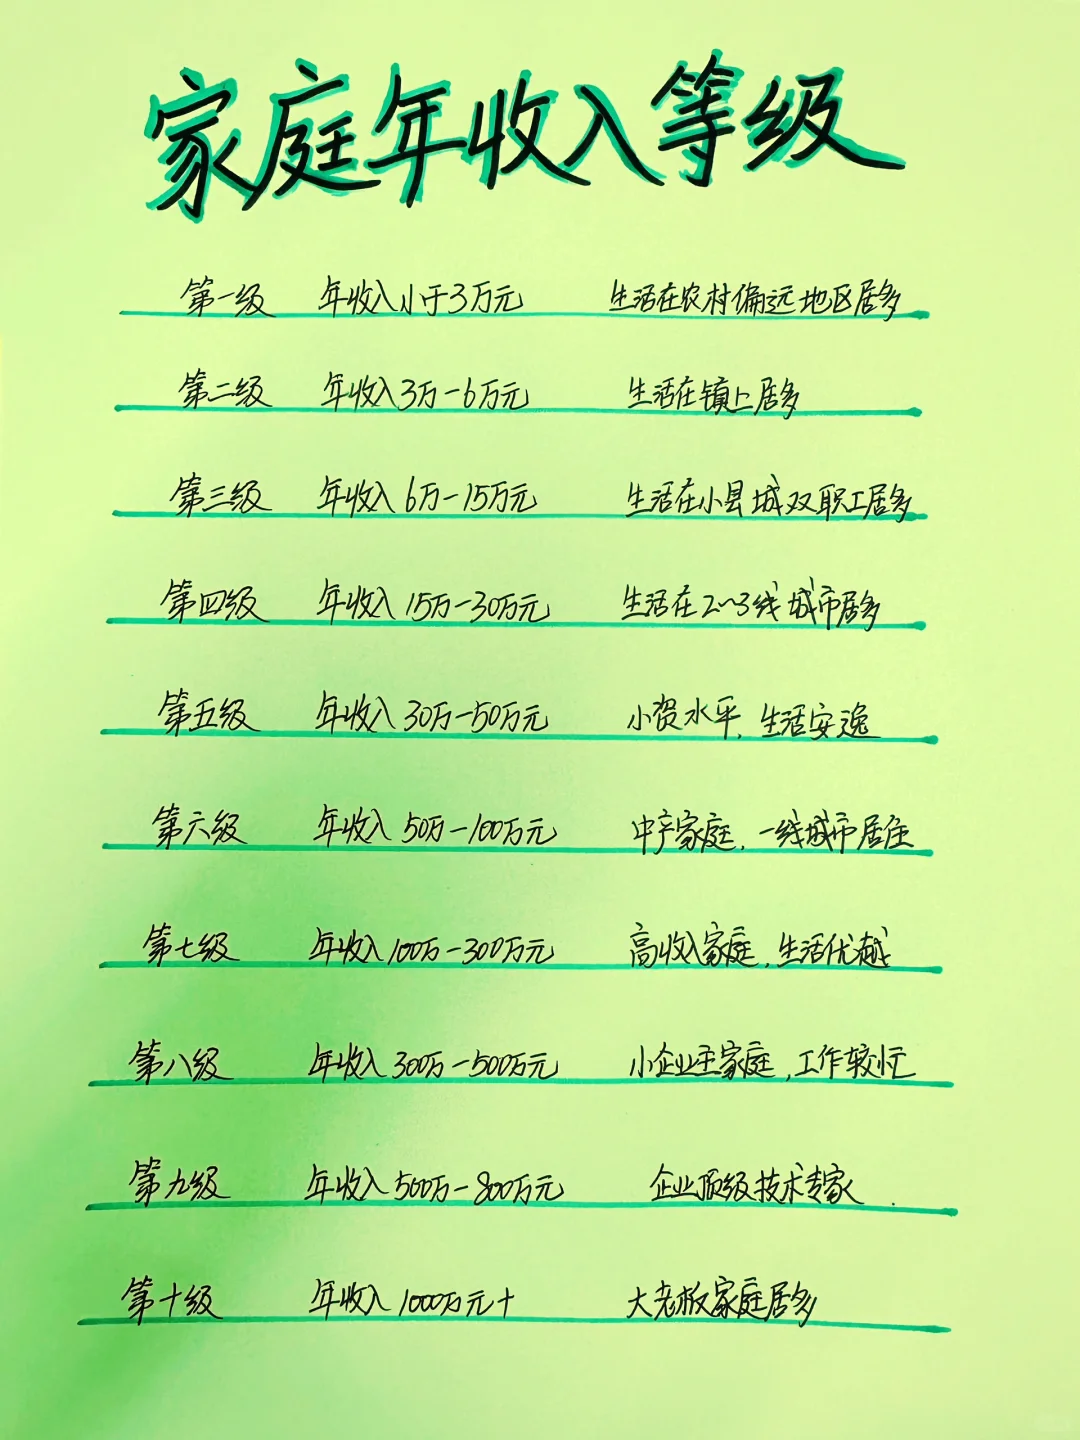 家庭年收入等级
第一级 年收入小于3万元 生活在农村偏远地区居多
第二级 年收入3万-6万元 生活在镇上居多
第三级 年收入6万-15万元 生活在小县城双职工居多
第四级 年收入15万-30万元 生活在2~3线城市居多
第五级 年收入30万-50万元 小资水平,生活安逸
第六级 年收入50万-100万元 中产家庭,一线城市居住
第七级 年收入100万-300万元 高收入家庭,生活优越
第八级 年收入300万-500万元 小企业主家庭,工作较忙
第九级 年收入500万-800万元 企业顶级技术专家
第十级 年收入1000万元+ 大老板家庭居多